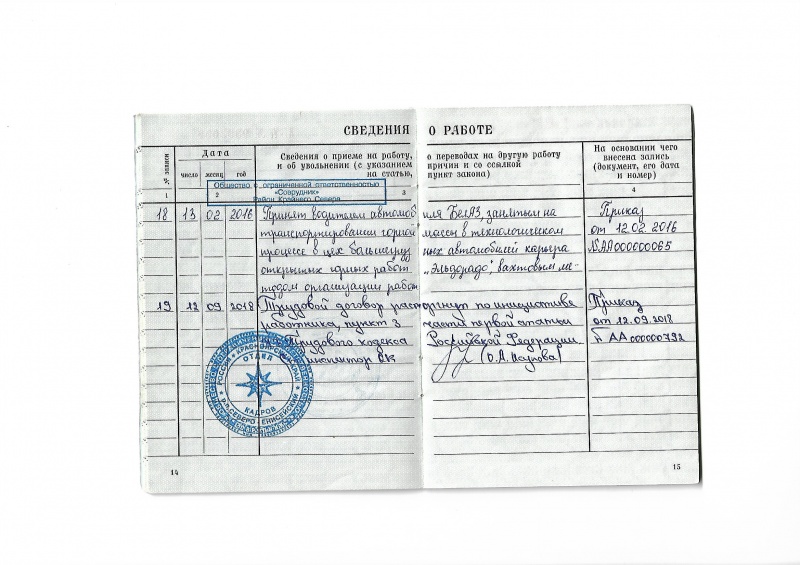 СВЕДЕНИЯ О РАБОТЕ
№ записи
Дата
число месяц год
Сведения о приеме на работу, о переводах на другую работу
и об увольнении (с указанием причин и со ссылкой
на статью, пункт закона)
На основании чего
внесена запись
(документ, его дата
и номер)
1 2 3 4
Общество с ограниченной ответственностью
«Соврудник»
Район Крайнего Севера
18 13 02 2016 Принят водителем автомобиля БелАЗ, занятым на
транспортировании горной массы в технологическом
процессе в цех большегрузных автомобилей карьера
открытых горных работ „Эльдорадо", вахтовым ме-
тодом организации работ
Приказ
от 12.02.2016
№АА000000065
19 12 09 2018 Трудовой договор расторгнут по инициативе
работника, пункт 3 части первой статьи
Трудового кодекса Российской Федерации
инспектор ОК (О.А. Наумова)
Приказ
от 12.09.2018
№ АА000000792
РОССИЯ КРАСНОЯРСКИЙ КРАЙ
ОТДЕЛ
КАДРОВ
Р-Н СЕВЕРО-ЕНИСЕЙСКИЙ
14 15